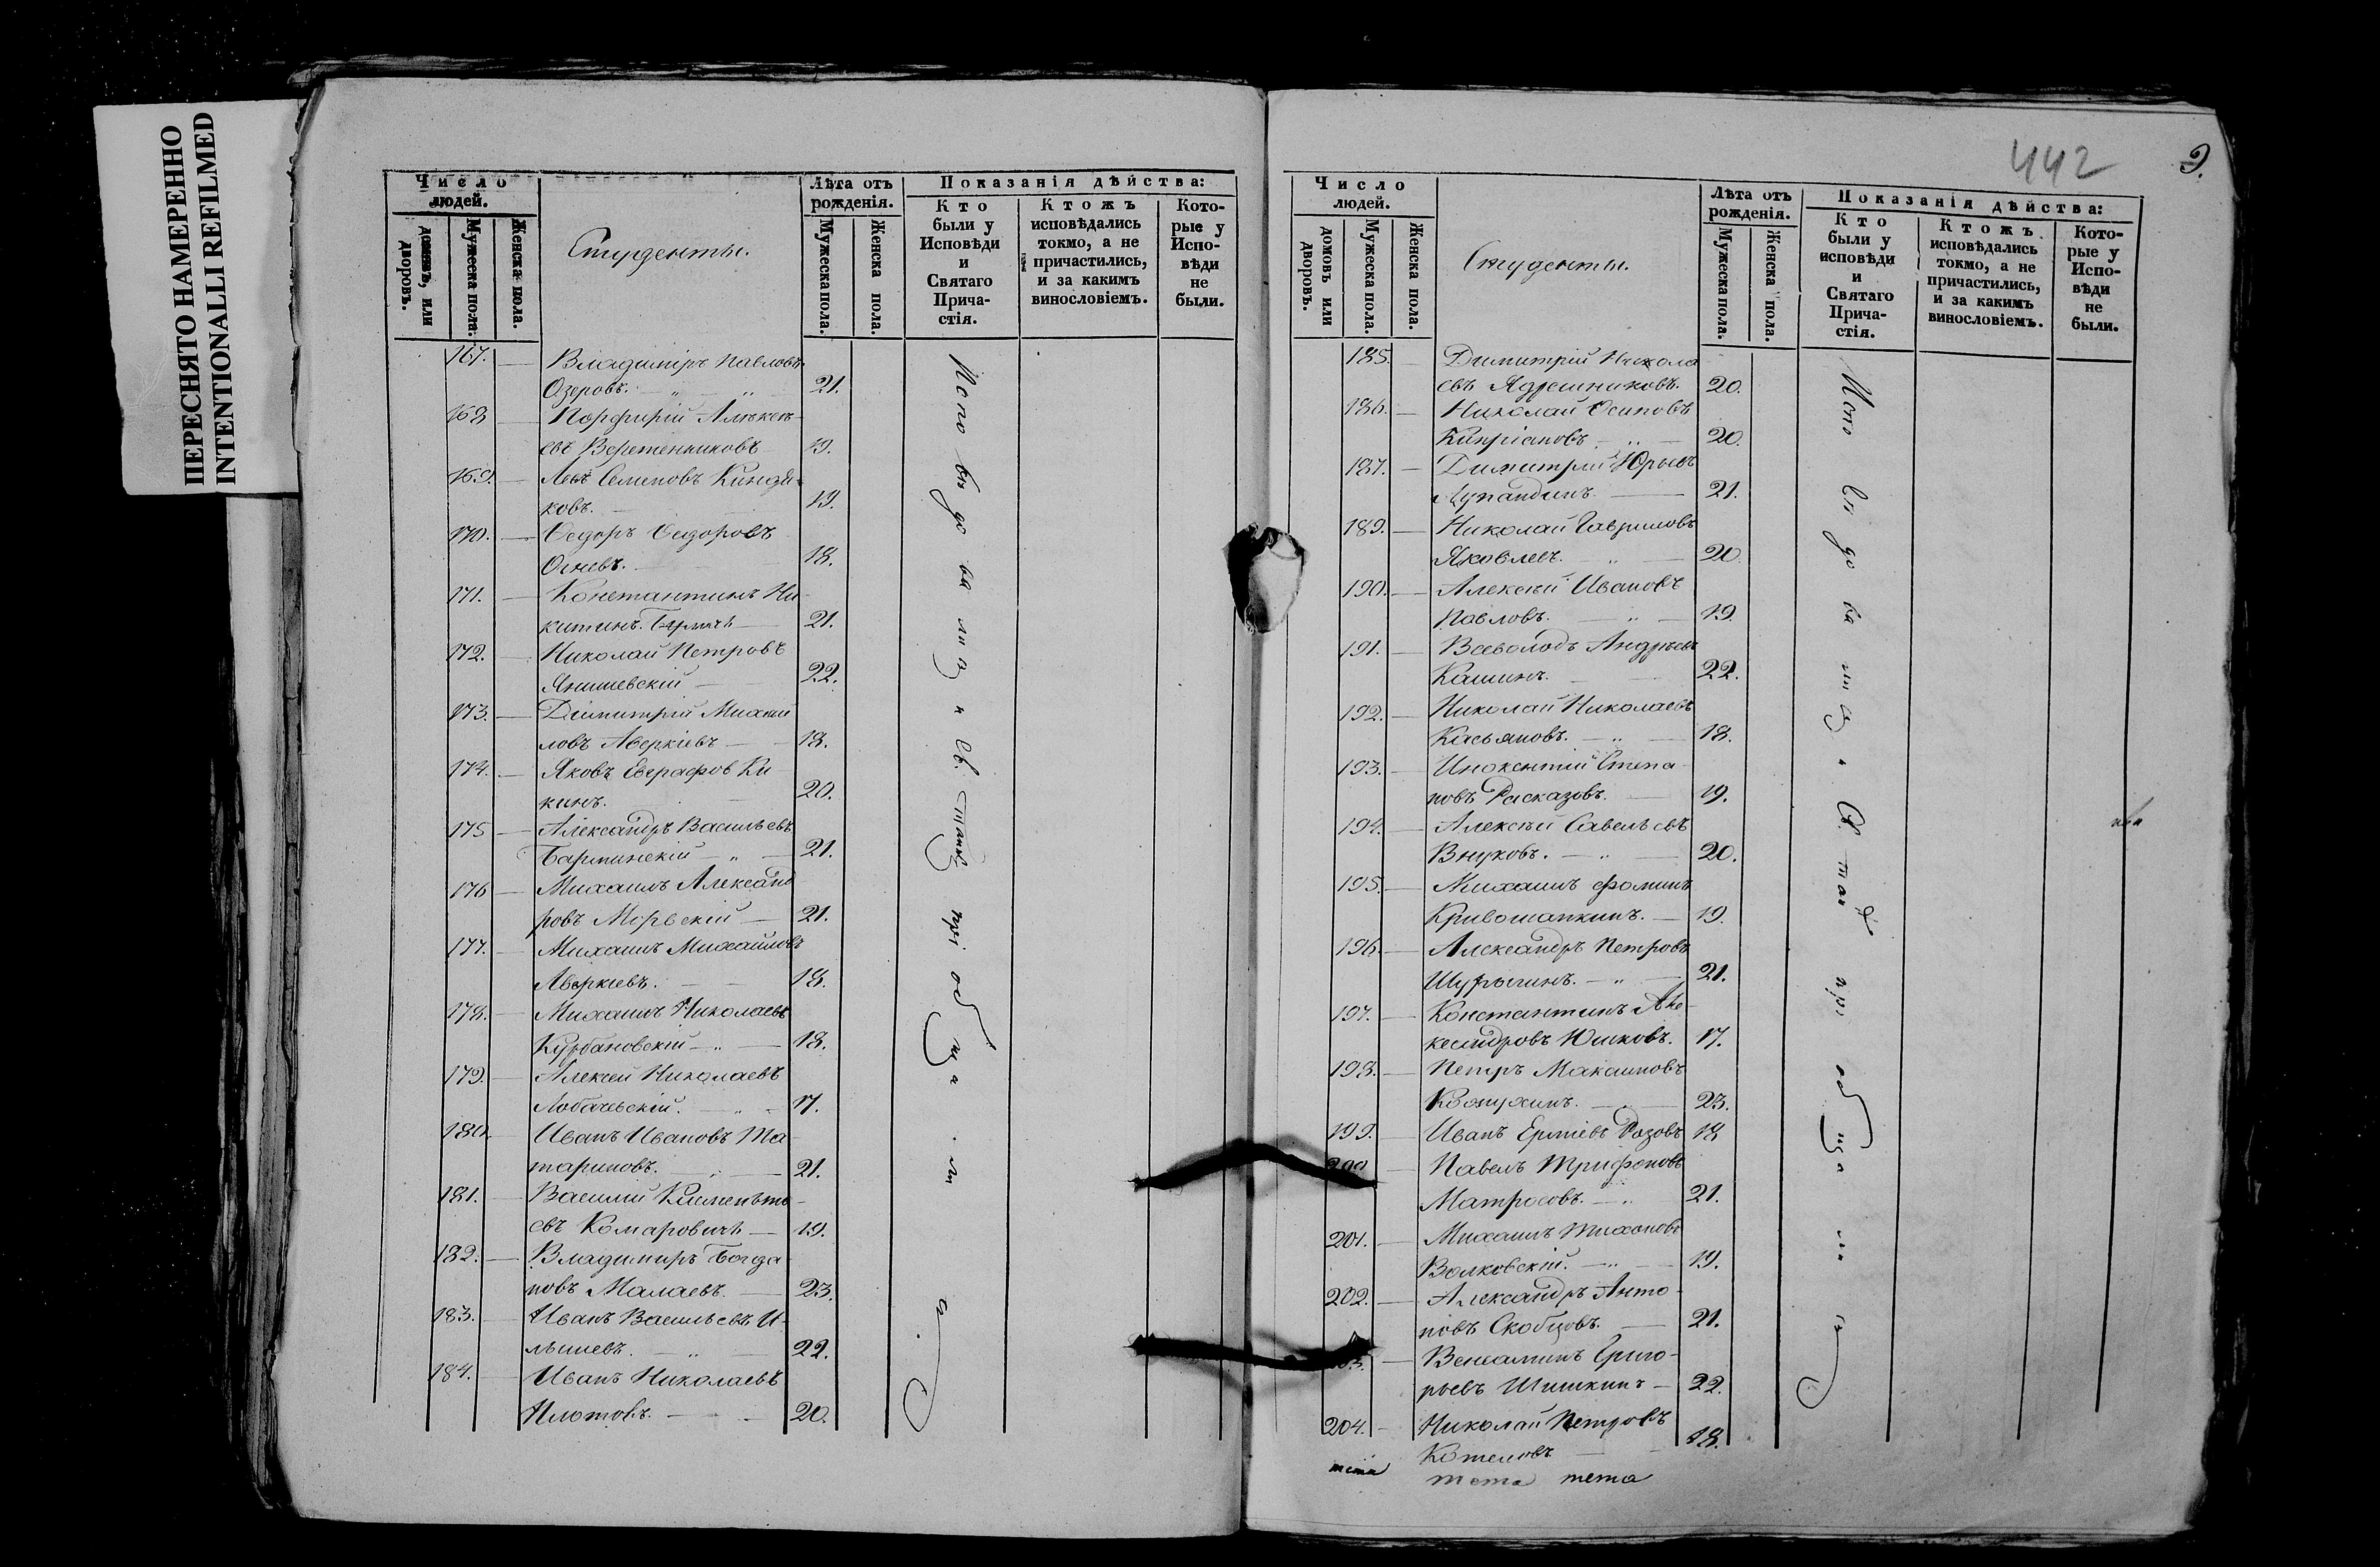 ПЕРЕСНЯТО НАМЕРЕННО
INTENTIONALLI REFILMED
Число людей.
домовъ, или дворовъ.
Мужеска пола.
Женска пола.
Студенты.
Лѣта отъ рожденія.
Мужеска пола.
Женска пола.
Показанія дѣйства:
Кто были у Исповѣди и Святаго Причастія.
Ктожъ исповѣдались токмо, а не причастились, и за какимъ винословіемъ.
Которые у Исповѣди не были.
167. — Владиміръ Павловъ
Озеровъ. 21.
168 — Порфирій Алѣксѣ-
евъ Веретенниковъ 19.
169. — Левъ Семеновъ Киндя-
ковъ. 19.
170. — Ѳедоръ Ѳедоровъ
Огневъ. 18.
171. — Константинъ Ни-
китинъ 21.
172. — Николай Петровъ
Янишевскій — 22.
173. — Димитрій Михаи
ловъ Аверкіевъ — 18.
174. — Яковъ Евграфов Ки
кинъ. 20.
175 — Александръ Васильевъ
Барминскій — 21.
176 — Михаилъ Александ
ровъ — 21.
177. — Михаилъ Михайловъ
Аверкіевъ. 18.
178. — Михаилъ Николаевъ
Курбановскій — 18.
179. — Алексѣй Николаевъ
Лобачевскій. 17.
180. Иванъ Ивановъ Та
тариновъ. 21.
181. — Василій Клименть-
евъ Комаровичъ — 19.
182. — Владимиръ Богда
новъ Малаевъ. — 23.
183. — Иванъ Васильевъ И-
льшевъ. 22.
184. — Иванъ Николаевъ
20.
Исповѣдовались и Св. таинъ пріобщались.
442
9.
Число людей.
домовъ или дворовъ.
Мужеска пола.
Женска пола.
Студенты.
Лѣта отъ рожденія.
Мужеска пола.
Женска пола.
Показанія дѣйства:
Кто были у исповѣди и Святаго Причастія.
Ктожъ исповѣдались токмо, а не причастились, и за какимъ винословіемъ.
Которые у Исповѣди не были.
185. — Димитрій Никола
евъ Ядрешниковъ. 20.
186. — Николай Осиповъ
Кипріановъ — 20.
187. — Димитрій Юрьевъ
Лупандинъ. — 21.
189. — Николай Гавриловъ
Яковлевъ. — 20.
190. — Алексѣй Ивановъ
Павловъ. — 19.
191. — Всеволодъ Андреевъ
Кашинъ. 22.
192. — Николай Николаевъ
Касьяновъ. — 18.
193. — Инокентій Степа
новъ Расказовъ. — 19.
194. — Алексѣй Савельевъ
Внуковъ. — 20.
195. — Михаилъ Фоминъ
Кривошапкинъ. — 19.
196. — Александръ Петровъ
Шурыгинъ. — 21.
197. — Константинъ Але-
ксандровъ Юшковъ. 17.
198. — Петръ Максимовъ
23.
199. — Иванъ Ермиевъ Розовъ 18
200 — Павелъ Трифоновъ
Матросовъ. — 21.
201. — Михаилъ Тихоновъ
Волковскій. — 19.
202. — Александръ Анто-
новъ Скобцовъ. — 21.
203. — Веніаминъ Григо-
рьевъ Шишкинъ — 22.
204. — Николай Петровъ
Котеловъ — 18.
тета тета тета